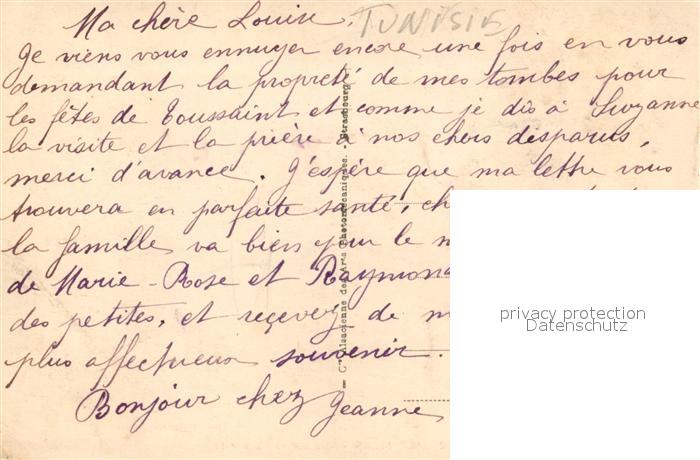 Ma chère Louise,
TUNISIE
Je viens vous ennuyer encore une fois en vous
demandant la propreté de mes tombes pour
les fêtes de Toussaint et comme je dis à Suzanne
la visite et la prière à nos chers disparus,
merci d'avance. J'espère que ma lettre vous
trouvera en parfaite santé, ch
la famille va bien pour le m
de Marie-Rose et Raymond
des petites, et recevez de m
plus affectueux souvenir.
Bonjour chez Jeanne
Cie Alsacienne des Arts Photomécaniques. Strasbourg
privacy protection
Datenschutz